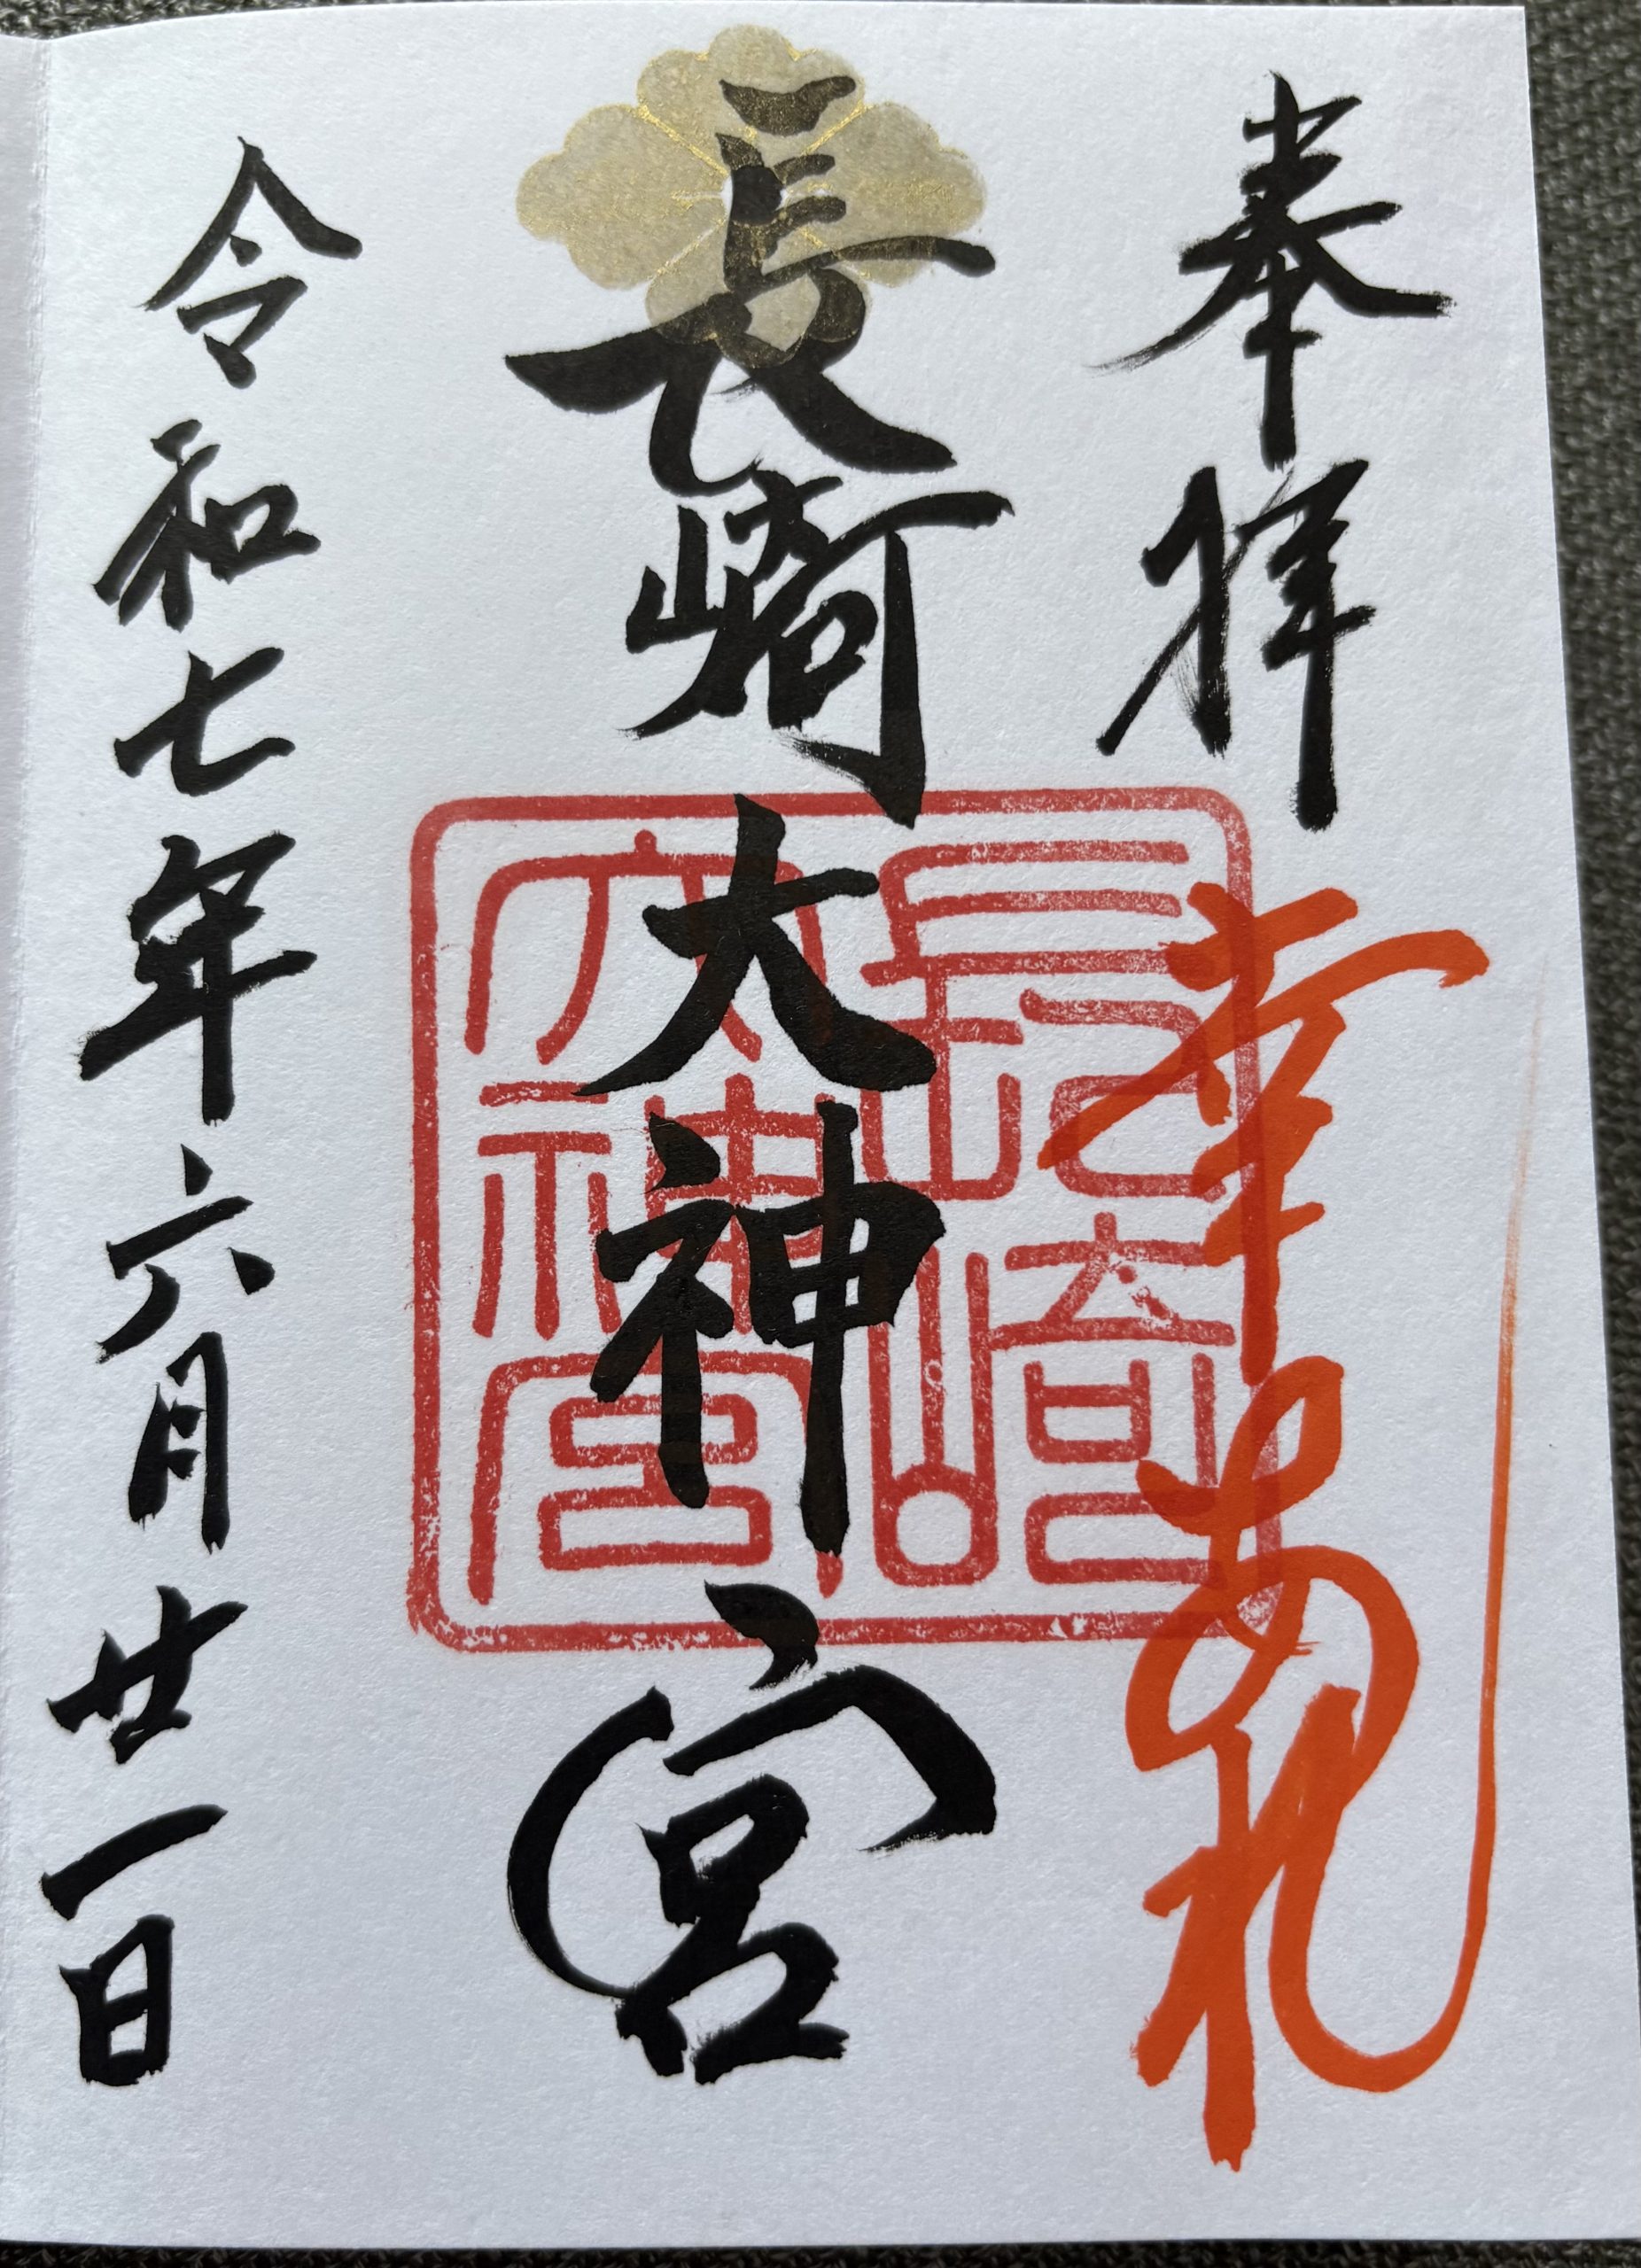 奉拝
幸あれ
長崎大神宮
長崎
大神宮
令和七年六月廿一日